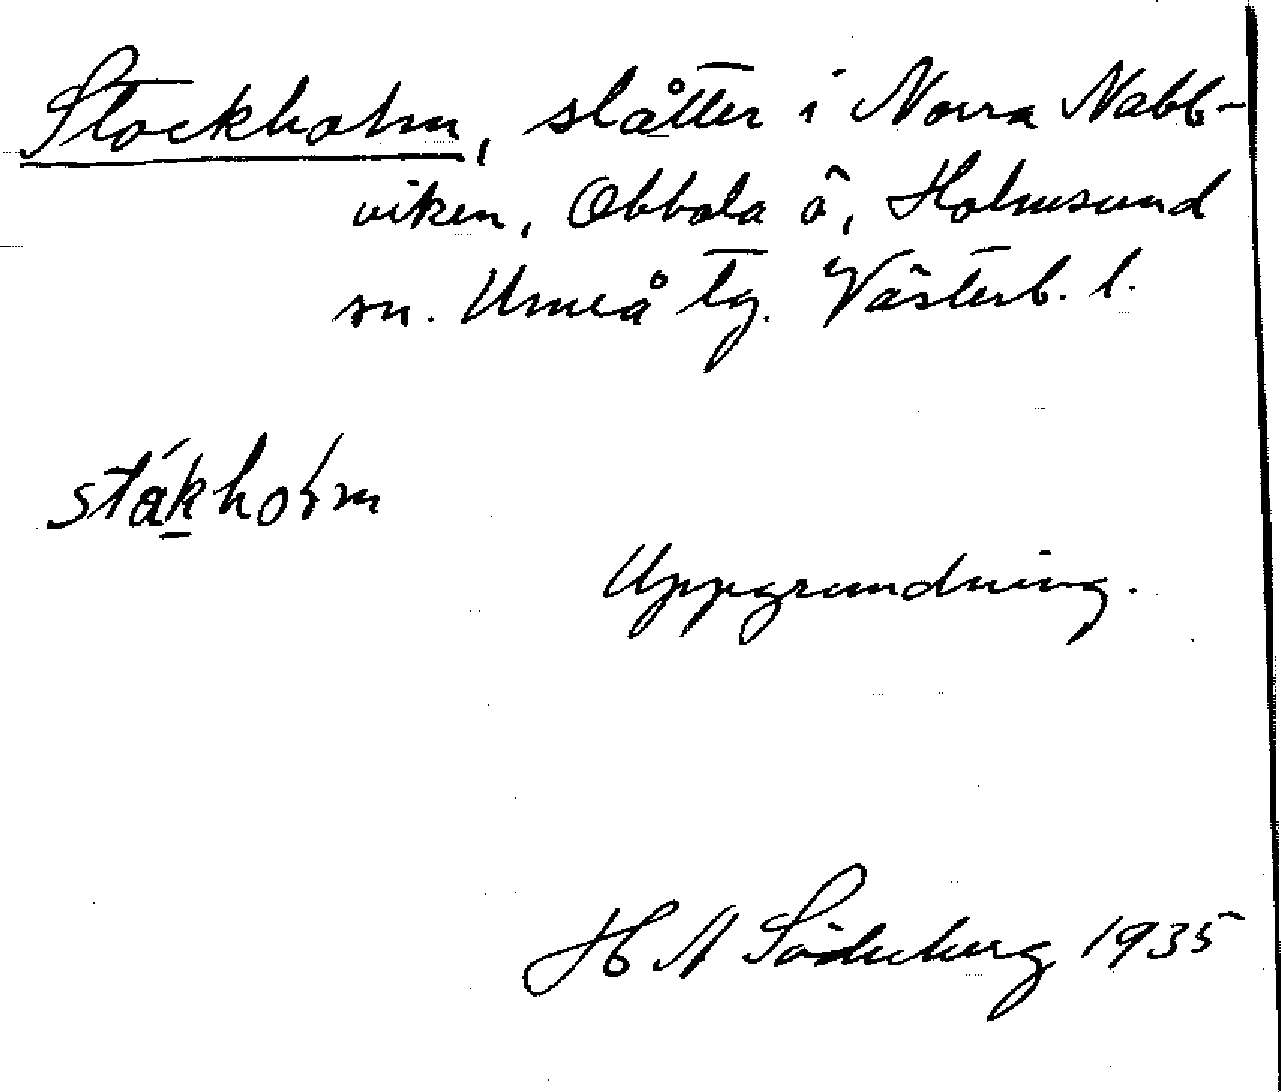 Stockholm, slåtter i Norra Nabb-
viken, Obbola ö, Holmsund
sn. Umeå tg. Västerb. l.
stákholm
Uppgrundning.
H N Söderberg 1935